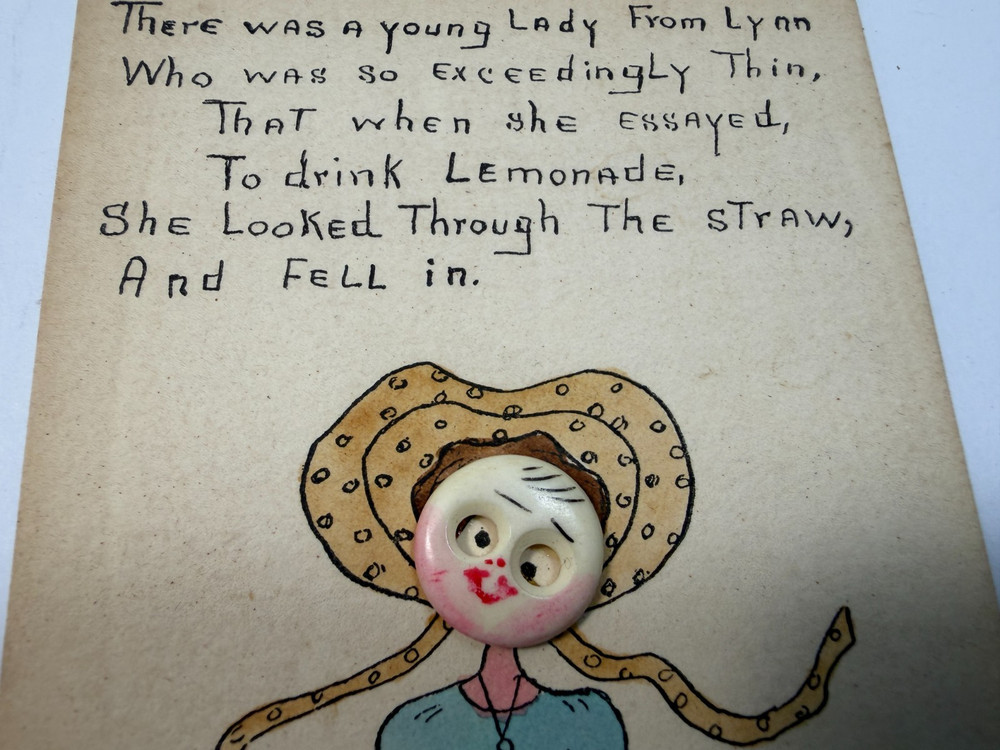 There was a young Lady From Lynn
Who was so Exceedingly Thin,
That when she essayed,
To drink Lemonade,
She Looked Through The straw,
And Fell in.